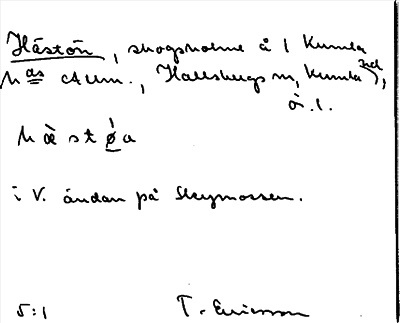 Hästön, skogsholme å 1 Kumla
n as Allm., Hallsbergs m, Kumla sd,
Ör. l.
h æ̀ s t ǿ a
i V. ändan på Skymossen.
5:1 T. Ericsson